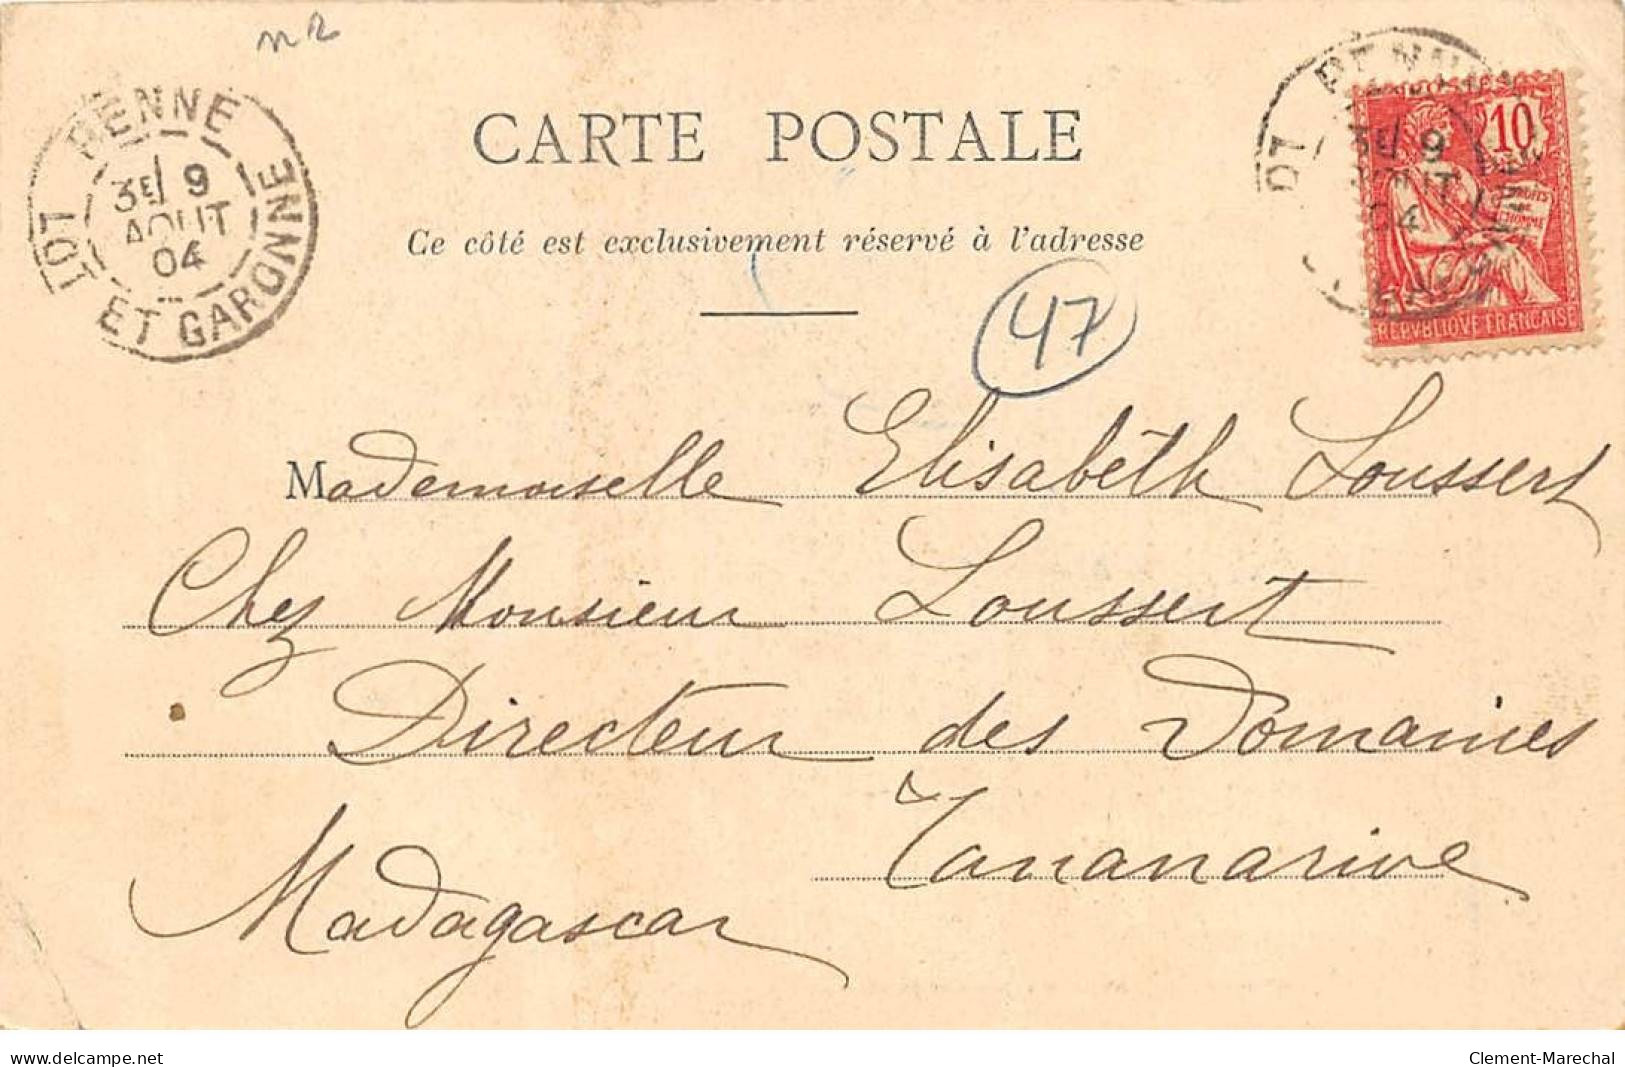 PENNE
3E/ 9
AOUT
04
LOT ET GARONNE
CARTE POSTALE
Ce côté est exclusivement réservé à l'adresse
47
10
DROITS
DE
L'HOMME
REPVBLIQVE FRANCAISE
3E/ 9
AOUT
04
Mademoiselle Elisabeth Loussert
Chez Monsieur Loussert
Directeur des Domaines
Tananarive
Madagascar
www.delcampe.net
Clement-Marechal